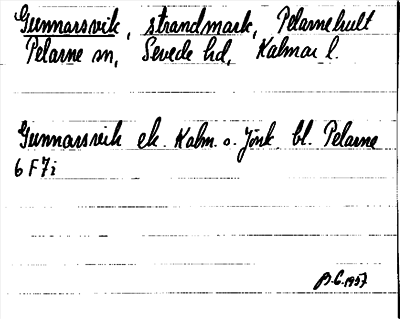 Gunnarsvik, strandmark, Pelarnehult
Pelarne sn, Sevede hd, Kalmar l.
Gunnarsvik ek. Kalm. o. Jönk. bl. Pelarne
6 F 7 i
B.E. 1957